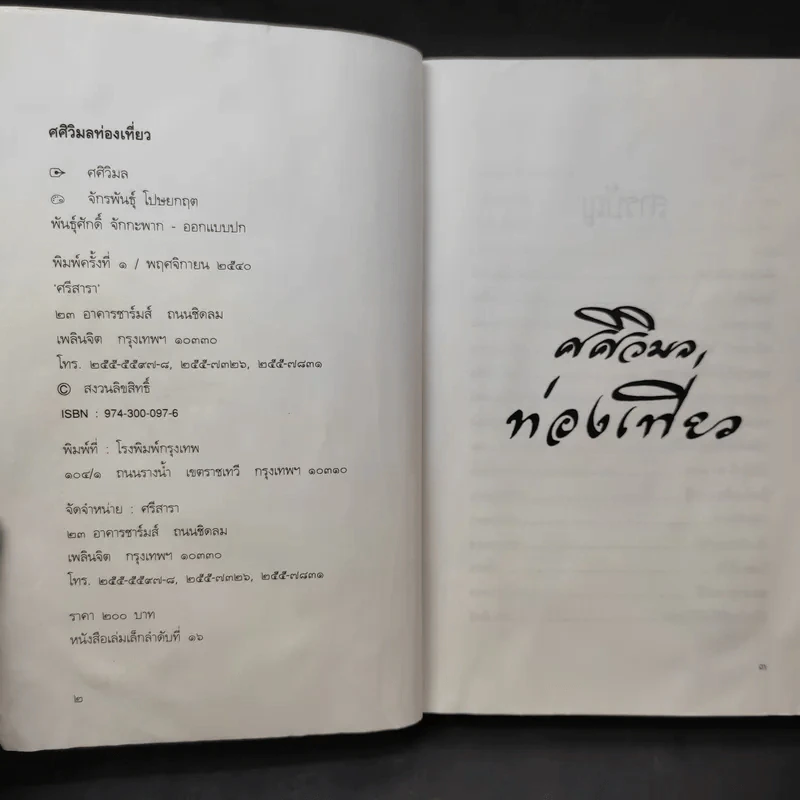 ศศิวิมลท่องเที่ยว
ศศิวิมล
จักรพันธุ์ โปษยกฤต
พันธุ์ศักดิ์ จักกะพาก - ออกแบบปก
พิมพ์ครั้งที่ ๑ / พฤศจิกายน ๒๕๔๐
'ศรีสารา'
๒๓ อาคารชาร์มส์ ถนนชิดลม
เพลินจิต กรุงเทพฯ ๑๐๓๓๐
โทร. ๒๕๕-๕๕๙๗-๘, ๒๕๕-๗๓๒๖, ๒๕๕-๗๘๓๑
© สงวนลิขสิทธิ์
ISBN : 974-300-097-6
พิมพ์ที่ : โรงพิมพ์กรุงเทพ
๑๐๔/๑ ถนนรางน้ำ เขตราชเทวี กรุงเทพฯ ๑๐๓๑๐
จัดจำหน่าย : ศรีสารา
๒๓ อาคารชาร์มส์ ถนนชิดลม
เพลินจิต กรุงเทพฯ ๑๐๓๓๐
โทร. ๒๕๕-๕๕๙๗-๘, ๒๕๕-๗๓๒๖, ๒๕๕-๗๘๓๑
ราคา ๒๐๐ บาท
หนังสือเล่มเล็กลำดับที่ ๑๖
๒
ศศิวิมล
ท่องเที่ยว
๓